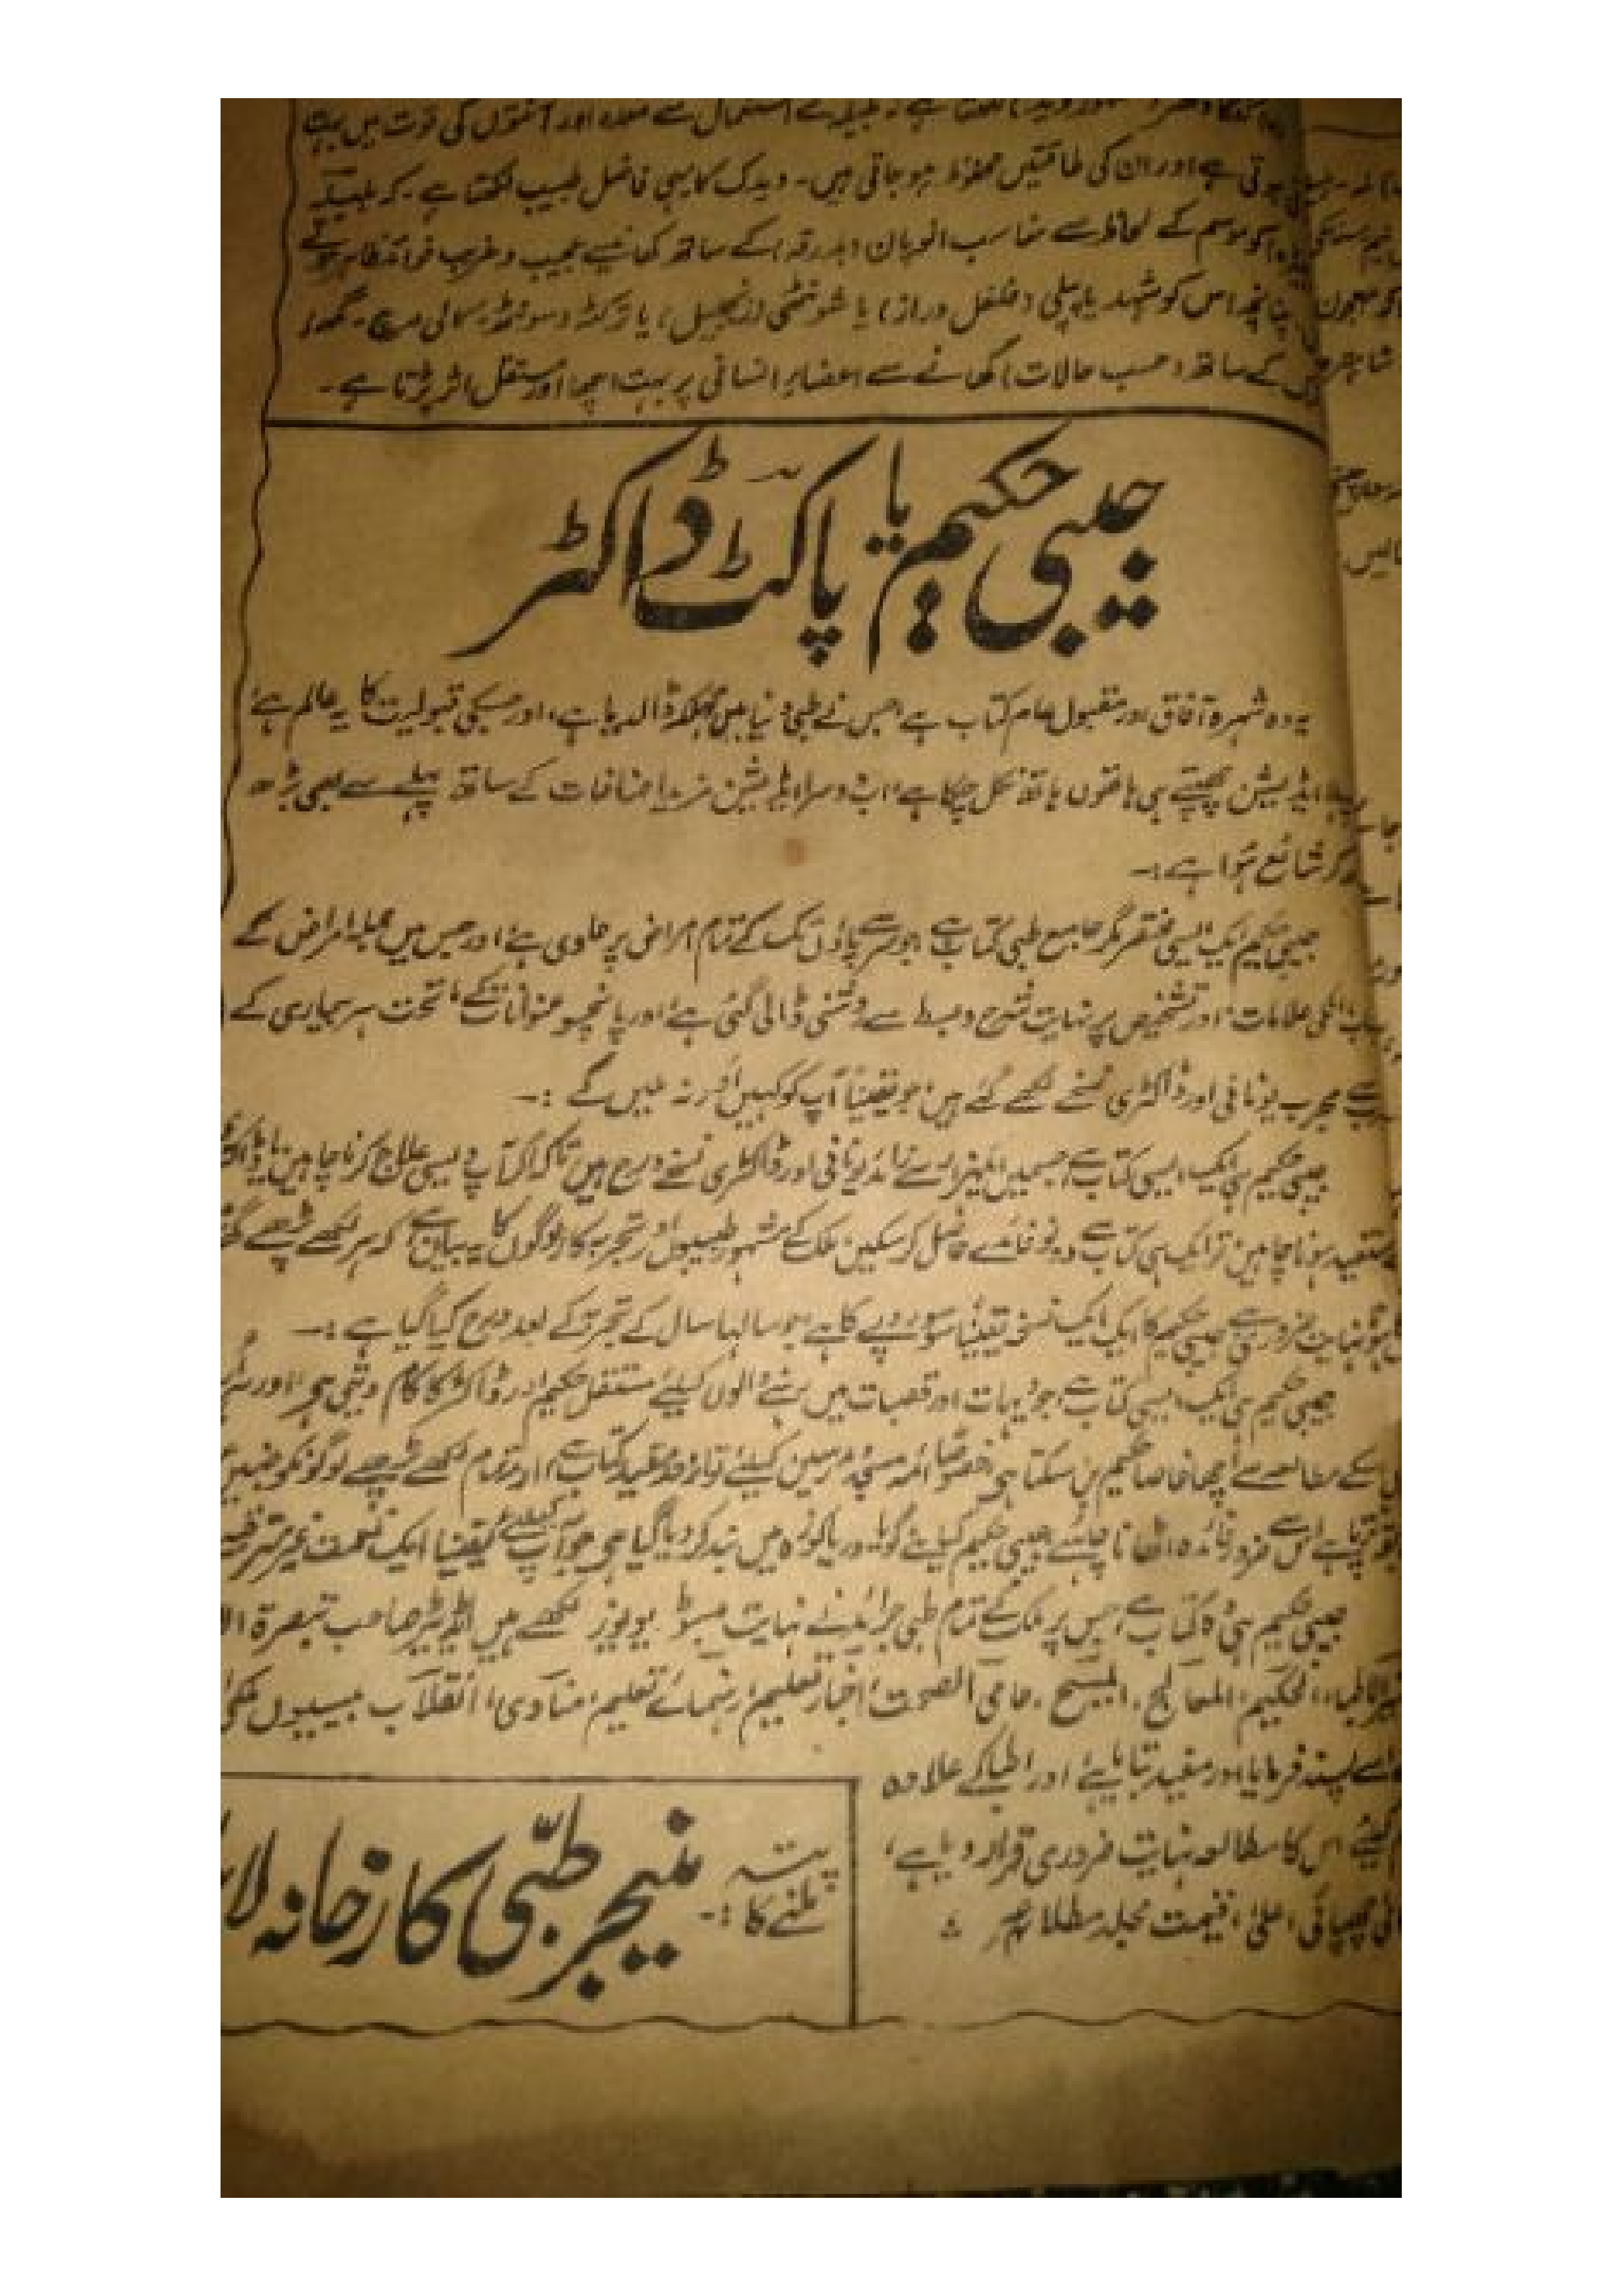 کے استعمال سے معدہ اور آنتوں کی قوت میں بہت
ہوتی ہے اور ان کی طاقتیں محفوظ ہو جاتی ہیں۔ ویدک کا یہی فاضل طبیب لکھتا ہے۔ کہ ہلیلہ
کو موسم کے لحاظ سے مناسب انوپان (بدرقہ) کے ساتھ کھانے سے عجیب و غریب فوائد ظاہر ہوتے
چنانچہ اس کو شہد یا پپلی (فلفل دراز) یا شونٹھی (زنجبیل) یا ترکٹہ (سونٹھ۔ کالی مرچ۔ مگھ)
کے ساتھ (حسب حالات) کھانے سے اعضاء انسانی پر بہت اچھا اور مستقل اثر پڑتا ہے۔
جیبی حکیم یا پاکٹ ڈاکٹر
یہ وہ شہرہ آفاق اور مقبول عام کتاب ہے جس نے طبی دنیا میں تہلکہ ڈالدیا ہے، اور جسکی قبولیت کا یہ عالم ہے
پہلا ایڈیشن چھپتے ہی ہاتھوں ہاتھ نکل چکا ہے، اب دوسرا ایڈیشن مزید اضافات کے ساتھ پہلے سے بھی بڑھ
کر شائع ہوا ہے:۔
جیبی حکیم ایک ایسی مختصر مگر جامع طبی کتاب ہے جو سر سے پاؤں تک کے تمام امراض پر حاوی ہے، اور جس میں جملہ امراض کے
اسباب انکی علامات، اور تشخیص پر نہایت شرح و بسط سے روشنی ڈالی گئی ہے، اور پانچسو عنوانات کے ماتحت ہر بیماری کے
مجرب یونانی اور ڈاکٹری نسخے لکھے گئے ہیں، جو یقیناً آپ کو کہیں اور نہ ملیں گے :۔
جیبی حکیم ہی ایک ایسی کتاب ہے، جسمیں ایکہزار سے زائد یونانی اور ڈاکٹری نسخے درج ہیں تاکہ اگر آپ دیسی علاج کرنا چاہیں یا
مستفید ہونا چاہیں تو ایک ہی کتاب سے دونو فائدے حاصل کر سکیں، ملک کے مشہور طبیبوں اور تجربہ کار لوگوں کا یہ بیان ہے کہ ہر لکھے پڑھے
جیبی حکیم کا ایک ایک نسخہ یقیناً سو روپے کا ہے، جو سالہا سال کے تجربے کے بعد درج کیا گیا ہے :۔
جیبی حکیم ہی ایک ایسی کتاب ہے، جو دیہات اور قصبات میں رہنے والوں کیلئے مستقل حکیم اور ڈاکٹر کا کام دیتی ہے، اور
کے مطالعہ سے اچھا خاصا حکیم بن سکتا ہے، خصوصاً ائمہ مسجد و مدرسین کیلئے تو از حد مفید کتاب ہے، اور تمام لکھے پڑھے لوگونکو جنہیں
اس سے ضرور فائدہ اٹھانا چاہئے جیبی حکیم کیا ہے گویا دریا کوزہ میں بند کر دیا گیا ہے جو آپ کیلئے یقیناً ایک نعمت غیر مترقبہ
جیبی حکیم ہی وہ کتاب ہے، جس پر ملک کے تمام طبی جرائد نے نہایت مبسوط ریویوز لکھے ہیں ایڈیٹر صاحب تبصرۃ الا
الحکیم، المعالج، المسیح، حامی الصحت، اخبار تعلیم، رہنمائے تعلیم، منادی، انقلاب، بیسیوں
اسے پسند فرمایا اور مفید بتایا ہے، اور اطبا کے علاوہ
کیلئے اس کا مطالعہ نہایت ضروری قرار دیا ہے،
چھپائی اعلیٰ، قیمت مجلد مطلا
پتہ
ملنے کا :۔
منیجر طبّی کارخانہ لا